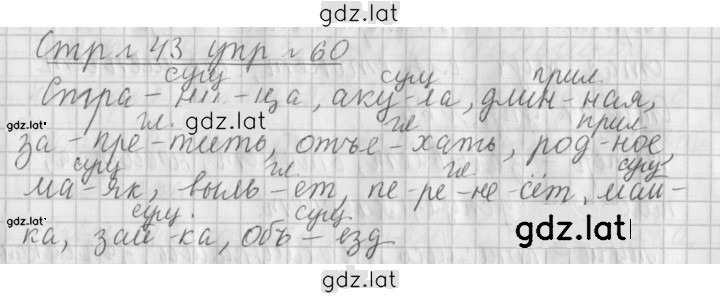 gdz.lat
Стр № 43 упр № 60
сущ сущ прил.
Стра-ни-ца, аку-ла, длин-ная,
gdz.lat
gdz.lat
гл. гл прил
за-пре-тить, отъе-хать, род-ное,
сущ гл гл. сущ
ма-як, выль-ет, пе-ре-не-сёт, май-
gdz.lat
сущ. сущ.
ка, зай-ка, объ-езд
gdz.lat
gdz.lat